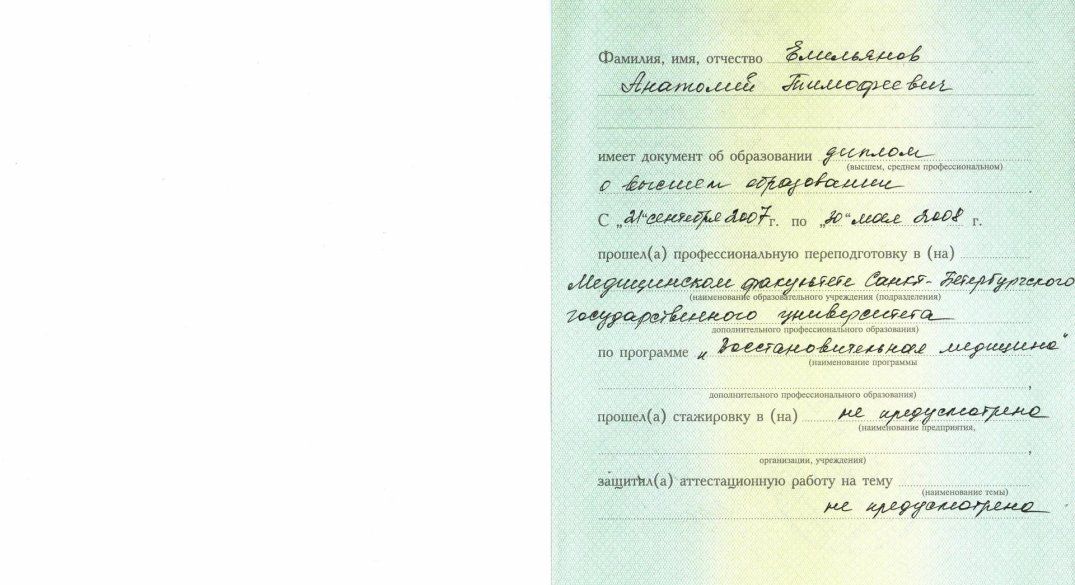 Фамилия, имя, отчество Емельянов
Анатолий Тимофеевич
имеет документ об образовании диплом
(высшем, среднем профессиональном)
о высшем образовании.
С „21“ сентября 2007 г. по „30“ мая 2008 г.
прошел(а) профессиональную переподготовку в (на)
Медицинском факультете Санкт-Петербургского
(наименование образовательного учреждения (подразделения)
государственного университета
дополнительного профессионального образования)
по программе „Восстановительная медицина“
(наименование программы
,
дополнительного профессионального образования)
прошел(а) стажировку в (на) не предусмотрено
(наименование предприятия,
,
организации, учреждения)
защитил(а) аттестационную работу на тему
(наименование темы)
не предусмотрено